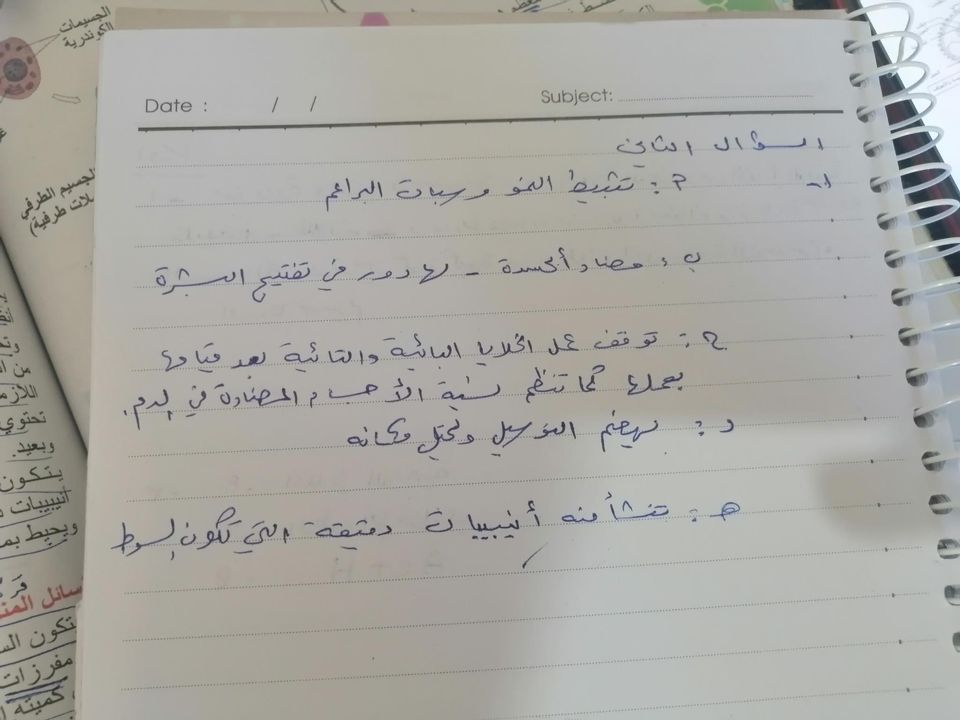 الجسيمات
الكوندرية
Date : / / Subject:
السؤال الثاني
١- P : تثبيط النمو وسبات البراعم
ب : مضاد أكسدة - لها دور في تفتيح البشرة
ج : توقف عمل الخلايا البائية والتائية بعد قيامها
بعملها كما تنظم نسبة الأجسام المضادة في الدم.
د : يهضم النوسيل ويحتل مكانه
هـ : تنشأ منه أنيبيبات دقيقة التي تكون السوط
الجسيم الطرفي
اللازم
تحتوي
وبعيد.
يتكون
أنيبيبات
ويحيط بم
سائل المن
تكون الس
مفرزات
كميته